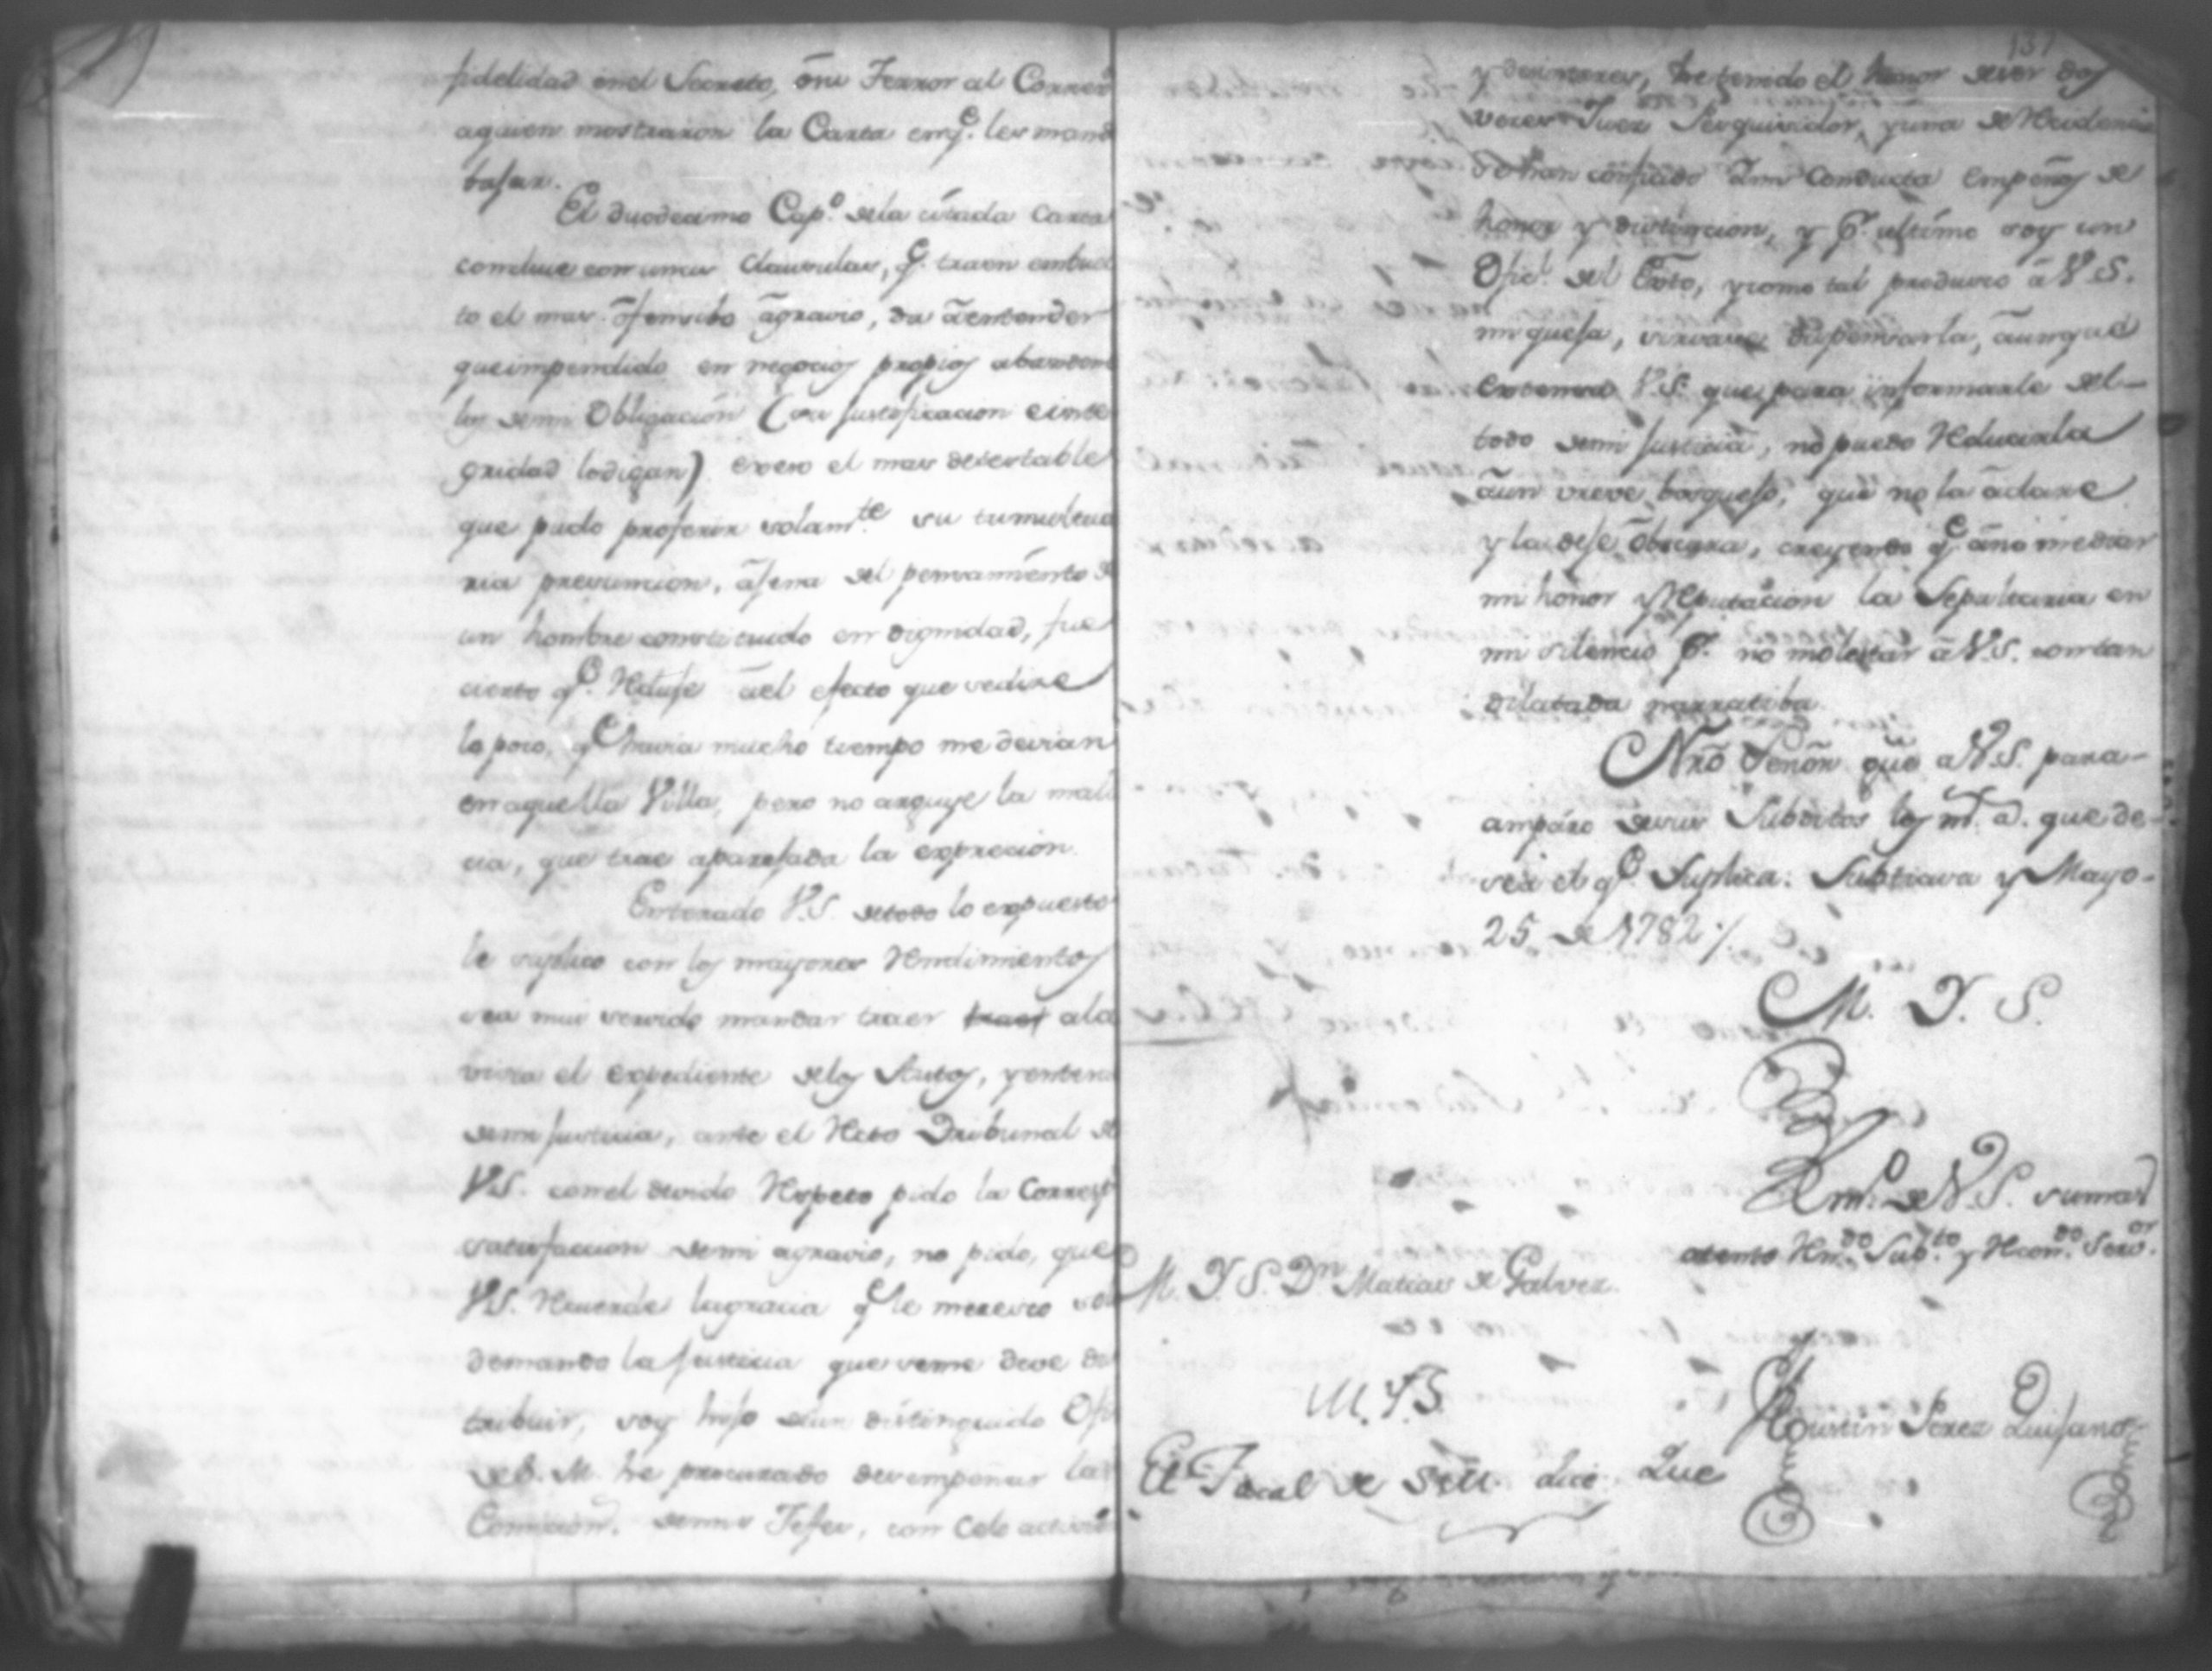 fidelidad enel Secreto, ó su Terror al Correo
aquien mostraron la Carta en q.e les mand
bajar.
El duodecimo Cap.o dela citada Carta
concluie con unas clausulas, q.e traen embuel
to el mas ofensibo agravio, da à entender
que impendido en negocios propios abandoné
los demi Obligacion (ora justificacion e inte
gridad lo digan) exeso el mas detestable
que pudo proferir solam.te su tumultua
ria presuncion, ajena del pensamiento de
un hombre constituido en dignidad, fue
cierto q.e Reduje àel efecto que se dixe
lo poco, q.e havia mucho tiempo me devian
en aquella Villa, pero no arguye la mali
cia, que trae aparejada la exprecion.
Enterado V.S. detodo lo expuesto
le suplico con los mayores Rendimientos
sea mui servido mandar traer traer ala
vista el expediente delos Autos, y entera
demi justicia, ante el Recto Tribunal de
V.S. con el devido Respeto pido la Corresp
satisfaccion demi agravio, no pido, que
V.S. Recuerde la gracia q.e le meresco sol
demando la justicia que seme deve dis
tribuir, soy hijo deun distinguido Ofi
de S. M. he procurado desempeñar las
Comicion.s demis Jefes, con Celo activid
137
y desinteres, he tenido el honor de ser dos
veces Juez Pesquisidor, y una de Recidencia
se han confiado à mi Conducta empeños de
honor y distincion, y p.r ultimo soy un
Ofic.l del Exto, y como tal produsco à V.S.
mi queja, sirvase dispensarla, aunque
extensa V.S. que para informarle del
todo demi justicia, no puedo Reducirla
àun breve bosquejo, que no la aclare
y la deje obscura, creyendo q.e àno mediar
mi honor y Reputacion la Sepultaria en
mi silencio p.r no molestar à V.S. con tan
dilatada narratiba.
Nrõ Señor gũe a V.S. para
amparo desus Subditos los m.s a.s que de-
sea el q.e Suplica. Subtiava y Mayo
25 de 1782 ./.
M. Y. S.
B.l m.o de V.S. su mas
atento Rn.do Sub.to y Recon.do Serv.or
M. Y. S. D.n Matias de Galvez.
Agustin Perez Quijano
M. Y. S.
El Fiscal de S.M. dice: Que